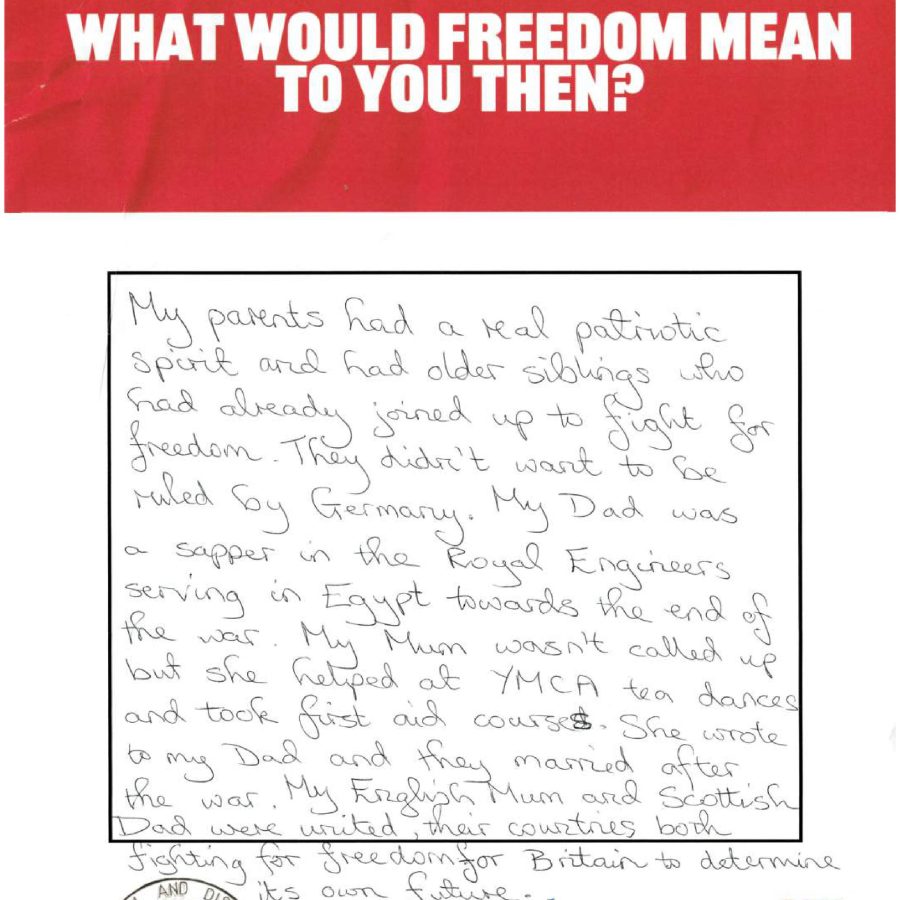 WHAT WOULD FREEDOM MEAN
TO YOU THEN?
My parents had a real patriotic
spirit and had older siblings who
had already joined up to fight for
freedom. They didn't want to be
ruled by Germany. My Dad was
a sapper in the Royal Engineers
serving in Egypt towards the end of
the war. My Mum wasn't called up
but she helped at YMCA tea dances
and took first aid courses. She wrote
to my Dad and they married after
the war. My English Mum and Scottish
Dad were united, their countries both
fighting for freedom for Britain to determine
its own future.
AND